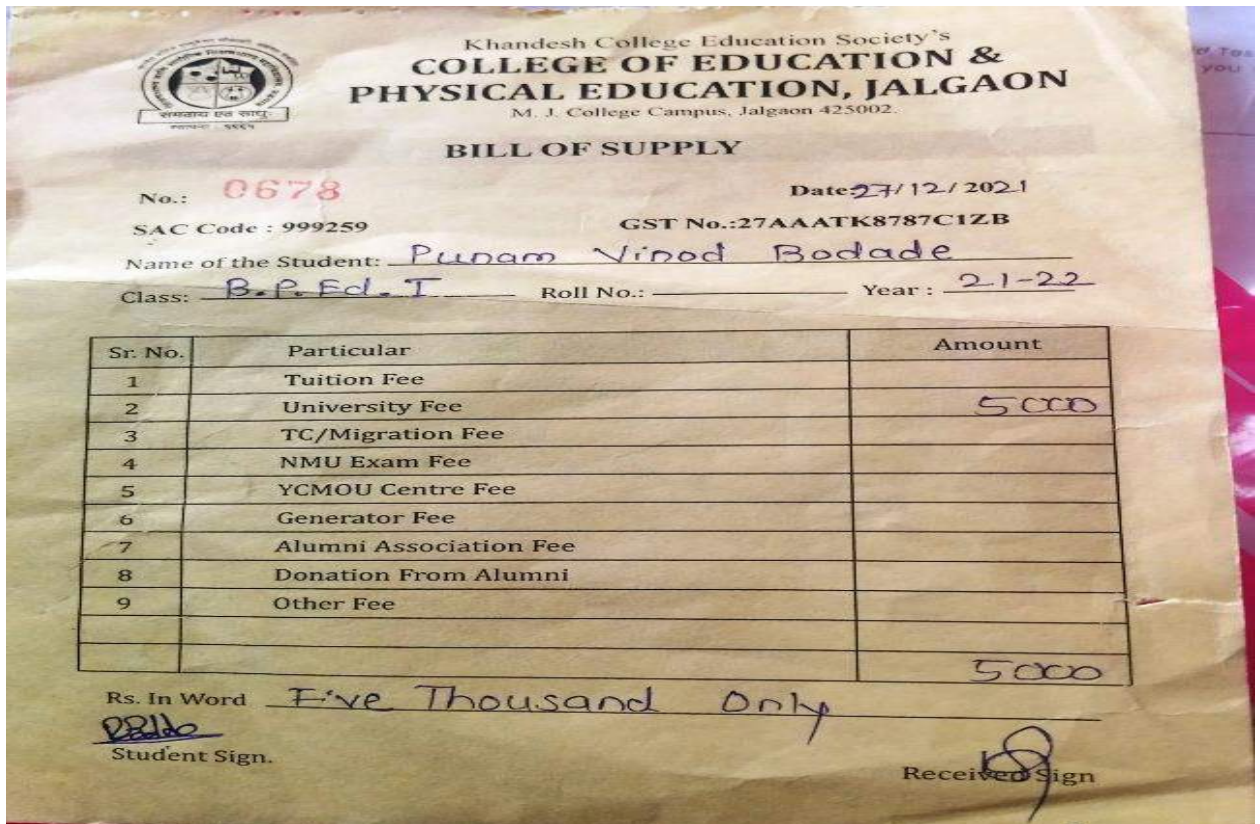 Khandesh College Education Society's
COLLEGE OF EDUCATION &
PHYSICAL EDUCATION, JALGAON
M. J. College Campus, Jalgaon 425002.
BILL OF SUPPLY
No.: 0678 Date: 27/12/2021
SAC Code : 999259 GST No.:27AAATK8787C1ZB
Name of the Student: Punam Vinod Bodade
Class: B.P.Ed. I Roll No.: Year : 21-22
Sr. No. Particular Amount
1 Tuition Fee
2 University Fee 5000
3 TC/Migration Fee
4 NMU Exam Fee
5 YCMOU Centre Fee
6 Generator Fee
7 Alumni Association Fee
8 Donation From Alumni
9 Other Fee
5000
Rs. In Word Five Thousand Only
Student Sign.
Received Sign